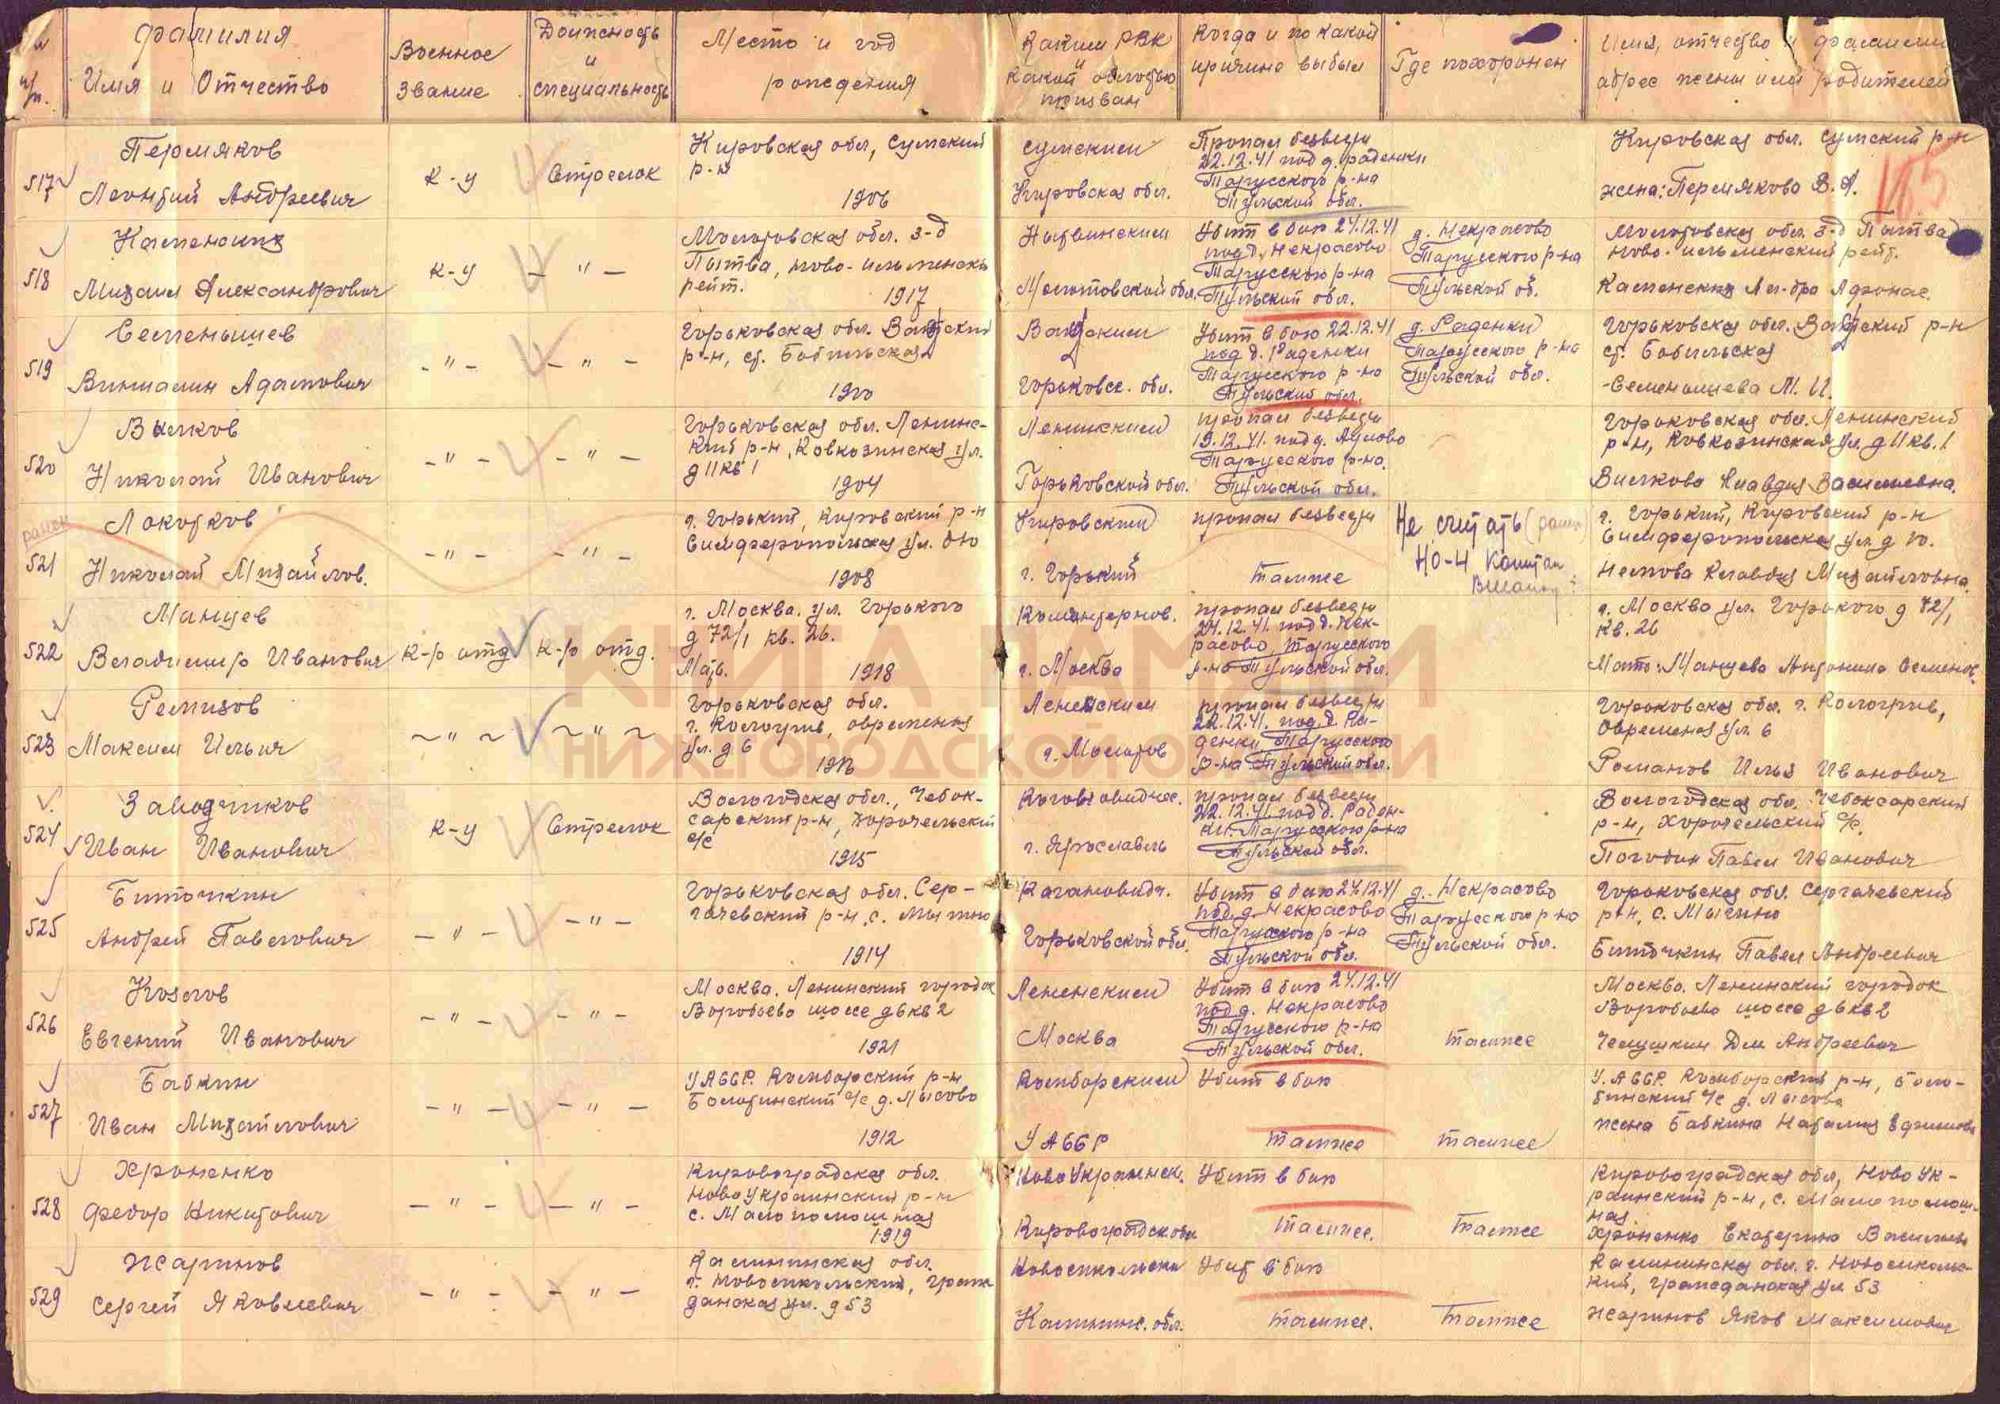 № п/п.
Фамилия
Имя и Отчество
Военное
Звание
Должность
и
специальность
Место и год
рождения
Каким РВК
и
какой областью
призван
Когда и по какой
причине выбыл
Где похоронен
Имя, отчество и фамилия
адрес жены или родителей
517
Пермяков
Леонтий Андреевич
к-ц
Стрелок
Кировская обл, Сунский
р-н
1906
Сунским
Кировская обл.
Пропал безвести
22.12.41 под д. Раденки
Тарусского р-на
Тульской обл.
Кировская обл. Сунский р-н
жена: Пермякова В. А.
185
518
Каменских
Михаил Александрович
к-ц
— " —
Молотовская обл. з-д
Нытва, ново-ильменски
рейт.
1917
Нытвинским
Молотовской обл.
Убит в бою 24.12.41
под д. Некрасово
Тарусского р-на
Тульской обл.
д. Некрасово
Тарусского р-на
Тульской об.
Молотовская обл. з-д Нытва
Ново-ильменский рейт.
Каменских Ал-дра Афонас.
519
Семенышев
Вениамин Адамович
- " -
— " —
Горьковская обл. Вачский
р-н, ст. Бобыльская
1920
Вачским
Горьковск. обл.
Убит в бою 22.12.41
под д. Раденки
Тарусского р-на
Тульской обл.
д. Раденки
Тарусского р-на
Тульской обл.
Горьковская обл. Вачский р-н
ст. Бобыльская
- Семенышева М. И.
520
Вилков
Николай Иванович
- " -
- " -
Горьковская обл. Ленинс-
кий р-н, Ковкозинская ул.
д 11 кв 1
1904
Ленинским
Горьковской обл.
Пропал безвести
19.12.41. под д.
Тарусского р-на.
Тульской обл.
Горьковская обл. Ленинский
р-н, Ковкозинская ул. д 11 кв. 1
Вилкова Клавдия Васильевна.
ранен
521
Локотков
Николай Михайлов.
- " -
- " -
г. Горький, Кировский р-н
Симферопольская ул. д 10
1908
Кировский
г. Горький
пропал безвести
Также
Не считать (ранен)
НО-4 Капитан
г. Горький, Кировский р-н
Симферопольская ул. д 10.
Клавдия Михайловна.
522
Манцев
Владимир Иванович
К-р отд
К-р отд.
г. Москва. ул. Горького
д 72/1 кв. 26.
1918
Коминтернов.
г. Москва
пропал безвести
24.12.41. под д. Нек-
расово, Тарусского
р-на Тульской обл.
г. Москва ул. Горького д 72/1,
кв. 26
Мать: Манцева Антонина Семенов.
523
Ремизов
Максим Ильич
~ " ~
~ " ~
Горьковская обл.
г. Кологрив, овременная
ул. д 6
Ленинским
г. Молотов
пропал безвести
22.12.41. под д. Ра-
денки Тарусского
р-на Тульской обл.
Горьковская обл. г. Кологрив,
Овременая ул. 6
Романов Илья Иванович
524
Заводчиков
Иван Иванович
к-ц
Стрелок
Вологодская обл., Чебок-
сарский р-н, Хорочельский
с/с
1915
г. Ярославль
пропал безвести
22.12.41. под д. Раден-
ки. Тарусского р-на
Тульской обл.
Вологодская обл. Чебоксарский
р-н, Хорочельский с/с.
Погодин Павел Иванович
525
Биточкин
Андрей Павлович
- " -
- " -
Горьковская обл. Сер-
гачевский р-н, с. Мыгино
1914
Каганович.
Горьковской обл.
Убит в бою 24.12.41
под д. Некрасово
Тарусского р-на
Тульской обл.
д. Некрасово
Тарусского р-на
Тульской обл.
Горьковская обл. Сергачевский
р-н, с. Мыгино
Биточкин Павел Андреевич
526
Козлов
Евгений Иванович
- " -
- " -
Москва. Ленинский городок
Воробьево шоссе д 6 кв 2
1921
Ленинским
Москва
Убит в бою 24.12.41
под д. Некрасово
Тарусского р-на
Тульской обл.
Также
Москва. Ленинский городок
Воробьево шоссе д 6 кв 2
Чемушкин Дм Андреевич
527
Бабкин
Иван Михайлович
- " -
- " -
УАССР. Камбарский р-н
Болотинский с/с д. Лысово
1912
Камбарским
УАССР
Убит в бою
также
также
УАССР. Камбарский р-н, Боло-
тинский с/с д. Лысово
жена Бабкина Наталия Ефимовн
528
Хроненко
Федор Никитович
- " -
- " -
Кировоградская обл.
НовоУкраинский р-н
с. Малопомошная
1919
НовоУкраинск.
Кировоградск обл
Убит в бою
также.
Также
Кировоградская обл, НовоУк-
раинский р-н, с. Малопомош-
ная
Хроненко Екатерина Васильев
529
Жаринов
Сергей Яковлевич
- " -
- " -
Калининская обл.
г. Новосокольский, Граж
данская ул. д 53
Новосокольски
Калинин. обл.
Убит в бою
также.
Также
Калининская обл. г. Новосоколь-
кий, Гражданская ул 53
Жаринов Яков Максимович
КНИГА ПАМЯТИ
НИЖЕГОРОДСКОЙ ОБЛАСТИ